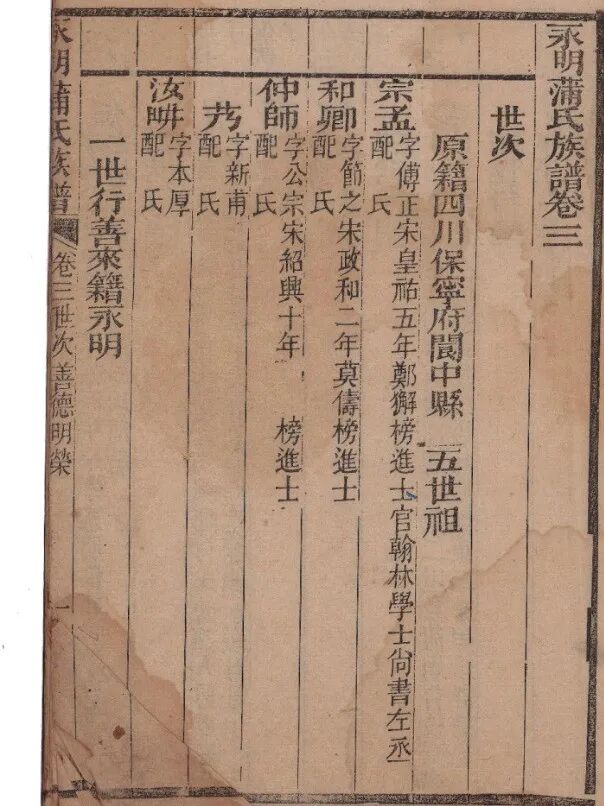 永明蒲氏族譜卷三
世次
原籍四川保寧府閬中縣 五世祖
宗孟 字傅正宋皇祐五年鄭獬榜進士官翰林學士尙書左丞
配 氏
和卿 字節之宋政和二年莫儔榜進士
配 氏
仲師 字公宗宋紹興十年 榜進士
配 氏
字新甫
配 氏
汝畊 字本厚
配 氏
一世行善來籍永明
永明蒲氏族譜 卷三世次 善德明榮 一